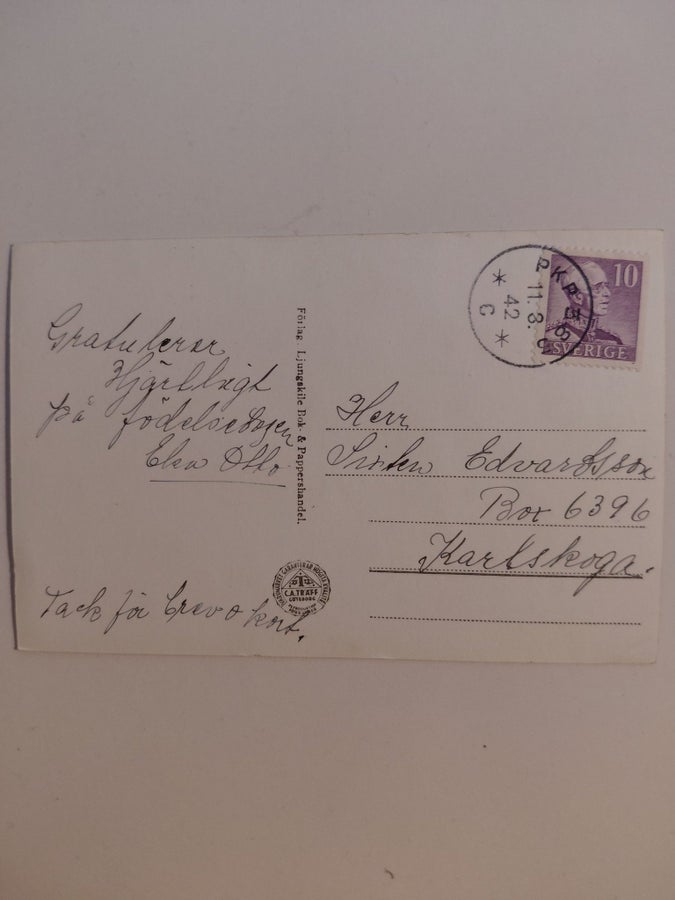 Gratulerar
Hjärtligt
på födelsedagen
Elsa Otto
Tack för brev o kort.
Förlag. Ljungskile Bok & Pappershandel.
C.A. TRÄFF
GÖTEBORG
PKP
11.3.
42
C
10
SVERIGE
Herr
Sixten Edvardsson
Box 6396
Karlskoga.